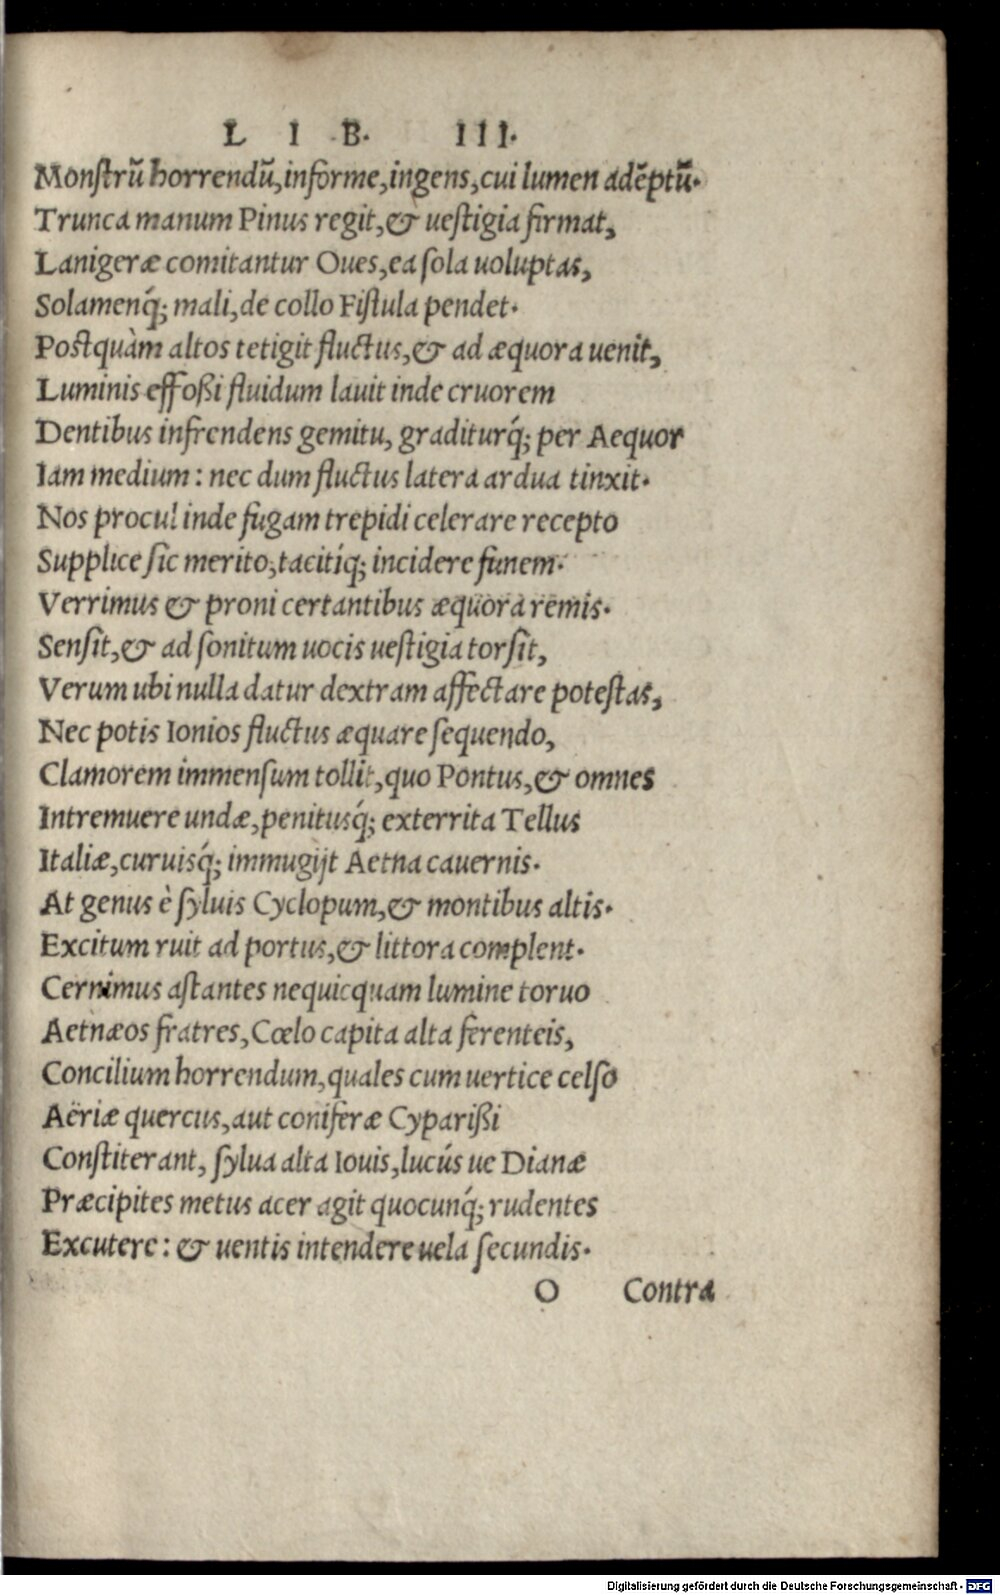 L I B. III.
Monſtrū horrendū, informe, ingens, cui lumen adēptū.
Trunca manum Pinus regit, & ueſtigia firmat,
Lanigeræ comitantur Oues, ea ſola uoluptas,
Solamenq́; mali, de collo Fiſtula pendet.
Postquàm altos tetigit fluctus, & ad æquora uenit,
Luminis effoßi fluidum lauit inde cruorem
Dentibus infrendens gemitu, graditurq́; per Aequor
Iam medium: nec dum fluctus latera ardua tinxit.
Nos procul inde fugam trepidi celerare recepto
Supplice ſic merito, tacitiq́; incidere funem.
Verrimus & proni certantibus æquora remis.
Senſit, & ad ſonitum uocis ueſtigia torſit,
Verum ubi nulla datur dextram affectare poteſtas,
Nec potis Ionios fluctus æquare ſequendo,
Clamorem immenſum tollit, quo Pontus, & omnes
Intremuere undæ, penitusq́; exterrita Tellus
Italiæ, curuisq́; immugijt Aetna cauernis.
At genus è ſyluis Cyclopum, & montibus altis.
Excitum ruit ad portus, & littora complent.
Cernimus aſtantes nequicquam lumine toruo
Aetnæos fratres, Cœlo capita alta ferenteis,
Concilium horrendum, quales cum uertice celſo
Aëriæ quercus, aut coniferæ Cyparißi
Conſtiterant, ſylua alta Iouis, lucús ue Dianæ
Præcipites metus acer agit quocunq́; rudentes
Excutere: & uentis intendere uela ſecundis.
O Contra
Digitalisierung gefördert durch die Deutsche Forschungsgemeinschaft - DFG